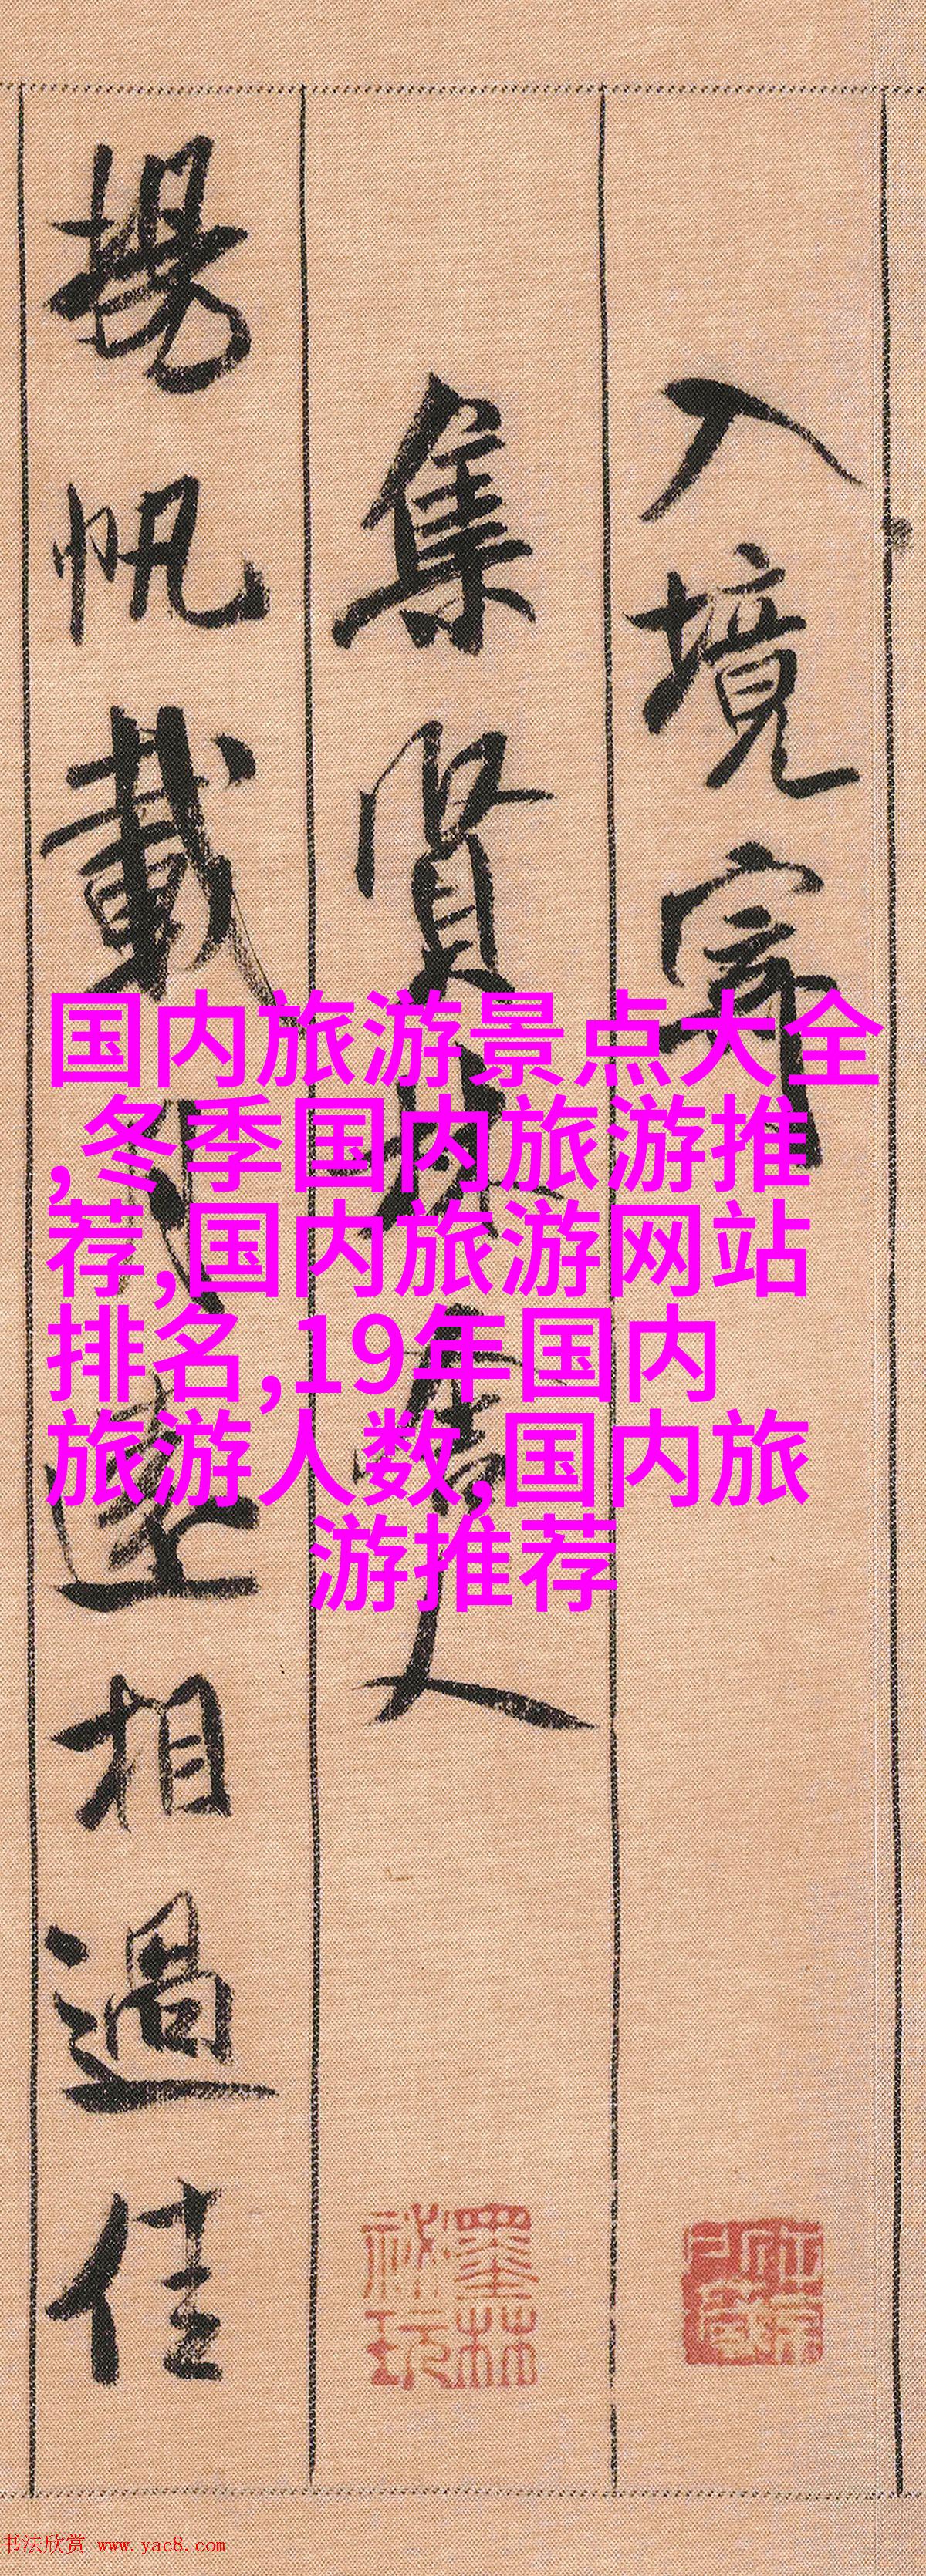 入境寄
集賢林舍人
揚帆載月遠相過佳
国内旅游景点大全
,冬季国内旅游推
荐,国内旅游网站
排名,19年国内
旅游人数,国内旅
游推荐
墨林
秘玩
书法欣赏 www.yac8.com